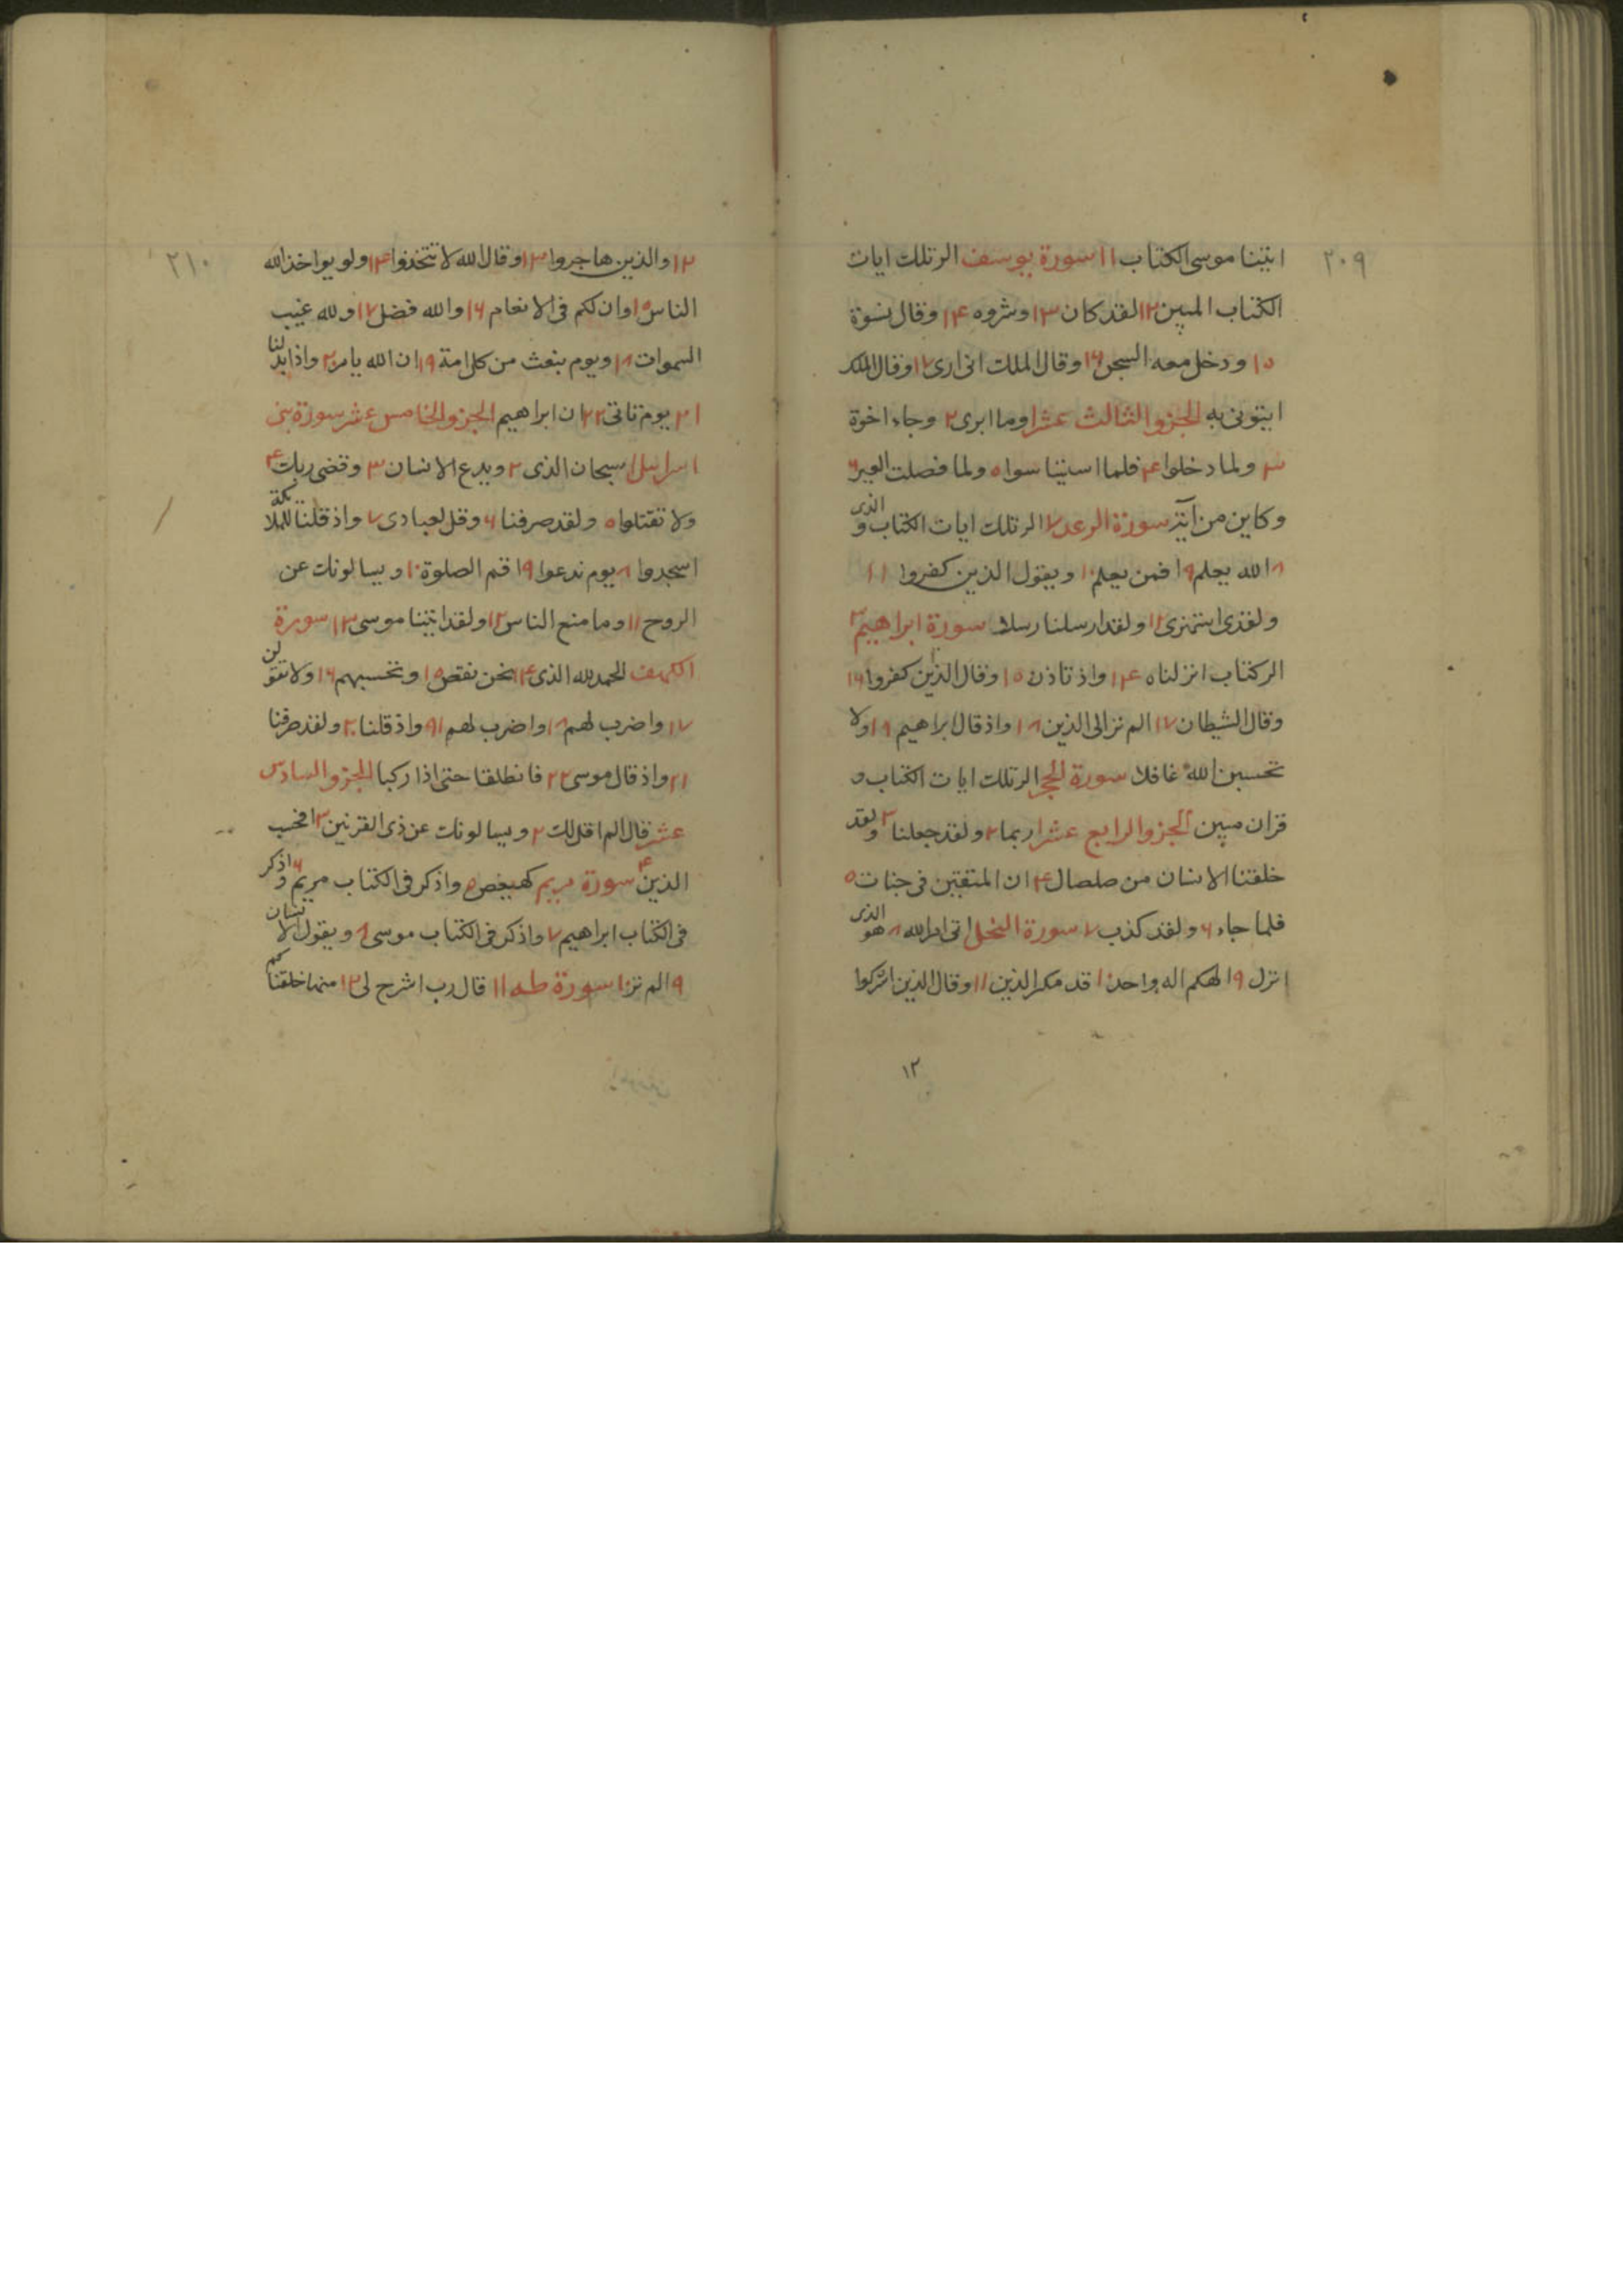 ٢٠٩
اتينا موسى الكتاب ١١ سورة يوسف الر تلك ايات
الكتاب المبين ١٢ لقد كان ١٣ وشروه ١٤ وقال نسوة
١٥ ودخل معه السجن ١٦ وقال الملك انى ارى ١٧ وقال الملك
ايتونى به الجزو الثالث عشر ١ وما ابرى ٢ وجاء اخوة
٣ ولما دخلوا ٤ فلما استيئسوا ٥ ولما فصلت العير ٦
وكاين من آية سورة الرعد ٧ الر تلك ايات الكتاب والذى
٨ الله يعلم ٩ افمن يعلم ١٠ ويقول الذين كفروا ١١
ولقد استهزى ١٢ ولقد ارسلنا رسلا سورة ابراهيم ١٣
الر كتاب انزلناه ١٤ واذ تاذن ١٥ وقال الذين كفروا ١٦
وقال الشيطان ١٧ الم تر الى الذين ١٨ واذ قال ابراهيم ١٩ ولا
تحسبن الله غافلا سورة الحجر الر تلك ايات الكتاب و
قران مبين الجزو الرابع عشر ١ ربما ٢ ولقد جعلنا ٣ ولقد
خلقنا الانسان من صلصال ٤ ان المتقين فى جنات ٥
فلما جاء ٦ ولقد كذب ٧ سورة النحل اتى امر الله ٨ هو الذى
انزل ٩ الهكم اله واحد ١٠ قد مكر الذين ١١ وقال الذين اشركوا
١٢
٢١٠
١٢ والذين هاجروا ١٣ وقال الله لا تتخذوا ١٤ ولو يواخذ الله
الناس ١٥ وان لكم فى الانعام ١٦ والله فضل ١٧ ولله غيب
السموات ١٨ ويوم نبعث من كل امة ١٩ ان الله يامر ٢٠ واذا بدلنا
٢١ يوم تاتى ٢٢ ان ابراهيم الجزو الخامس عشر سورة بنى
اسرايل ١ سبحان الذى ٢ ويدع الانسان ٣ وقضى ربك ٤
ولا تقتلوا ٥ ولقد صرفنا ٦ وقل لعبادى ٧ واذ قلنا للملائكة
اسجدوا ٨ يوم ندعوا ٩ اقم الصلوة ١٠ ويسالونك عن
الروح ١١ وما منع الناس ١٢ ولقد اتينا موسى ١٣ سورة
الكهف الحمد لله الذى ١٤ نحن نقص ١٥ وتحسبهم ١٦ ولا تقولن
١٧ واضرب لهم ١٨ واضرب لهم ١٩ واذ قلنا ٢٠ ولقد صرفنا
٢١ واذ قال موسى ٢٢ فانطلقا حتى اذا ركبا الجزو السادس
عشر قال الم اقل لك ٢ ويسالونك عن ذى القرنين ٣ افحسب
الذين ٤ سورة مريم كهيعص ٥ واذكر فى الكتاب مريم ٦ واذكر
فى الكتاب ابراهيم ٧ واذكر فى الكتاب موسى ٨ ويقول الانسان
٩ الم تر ١٠ سورة طه ١١ قال رب اشرح لى ١٢ منها خلقناكم